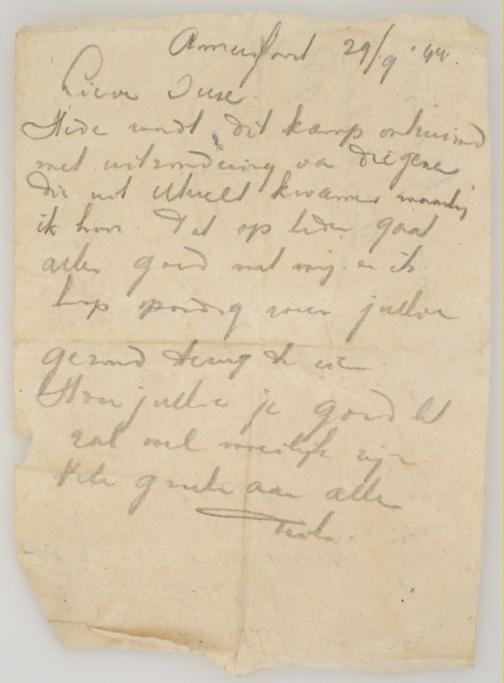 Amersfoort 29/9 '44.
Lieve Suze.
Hede wordt dit kamp ontruimd
met uitzondering van diegene
die uit Utrecht kwamen waarbij
ik hoor. Tot op heden gaat
alles goed met mij en ik
hoop spoedig weer jullie
gezond terug te zien
Hou jullie je goed het
zal wel moeilijk zijn
Vele groeten aan allen